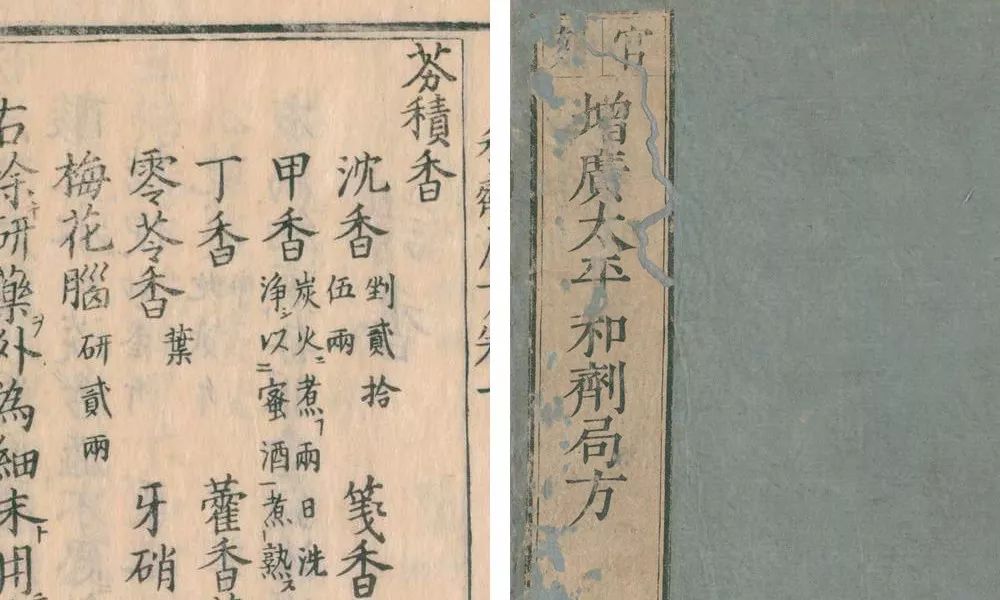 芬積香
沈香 剉貳拾伍兩 箋香
甲香 炭火ニ煮フ兩日洗淨シ以ニ蜜酒一煮熟ス
丁香 藿香
零苓香 葉 牙硝
梅花腦 研貳兩
右除研藥ヲ外為細末ト用
官
增廣太平和劑局方